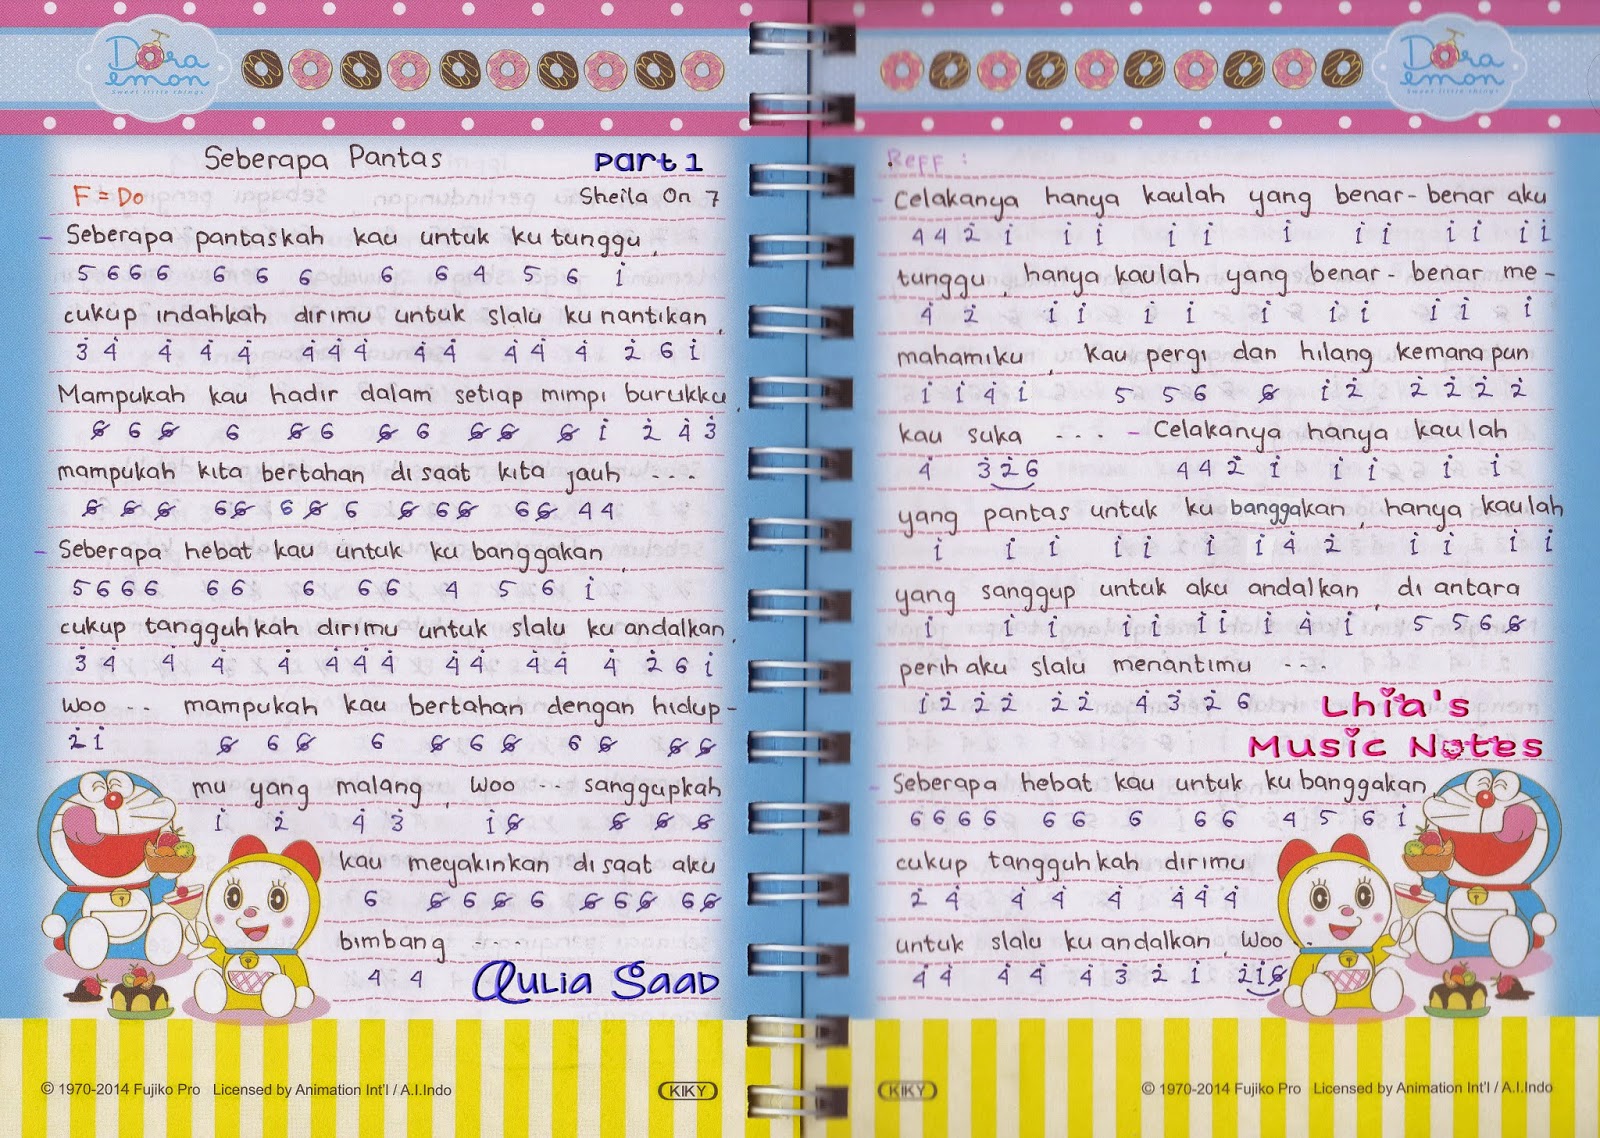 Dora
emon
Sweet little things
Seberapa Pantas Part 1
F = Do Sheila On 7
- Seberapa pantaskah kau untuk ku tunggu,
5 6 6 6 6 6 6 6 6 4 5 6 i
cukup indahkah dirimu untuk slalu ku nantikan,
3̇ 4̇ 4̇ 4̇ 4̇ 4̇ 4̇ 4̇ 4̇ 4̇ 4̇ 4̇ 4̇ 2̇ 6 i
Mampukah kau hadir dalam setiap mimpi burukku,
6̸ 6 6̸ 6 6̸ 6 6̸ 6 6̸ 6̸ 6̸ i 2̇ 4̇ 3̇
mampukah kita bertahan di saat kita jauh ...
6̸ 6̸ 6̸ 6 6̸ 6 6̸ 6 6̸ 6 6̸ 6 6̸ 4 4
- Seberapa hebat kau untuk ku banggakan,
5 6 6 6 6 6 6 6 6 4 5 6 i
cukup tangguhkah dirimu untuk slalu ku andalkan,
3̇ 4̇ 4̇ 4̇ 4̇ 4̇ 4̇ 4̇ 4̇ 4̇ 4̇ 4̇ 4̇ 2̇ 6 i
Woo .. mampukah kau bertahan dengan hidup-
2̇ i 6̸ 6 6̸ 6 6̸ 6 6̸ 6 6̸ 6̸ 6̸
mu yang malang, Woo ... sanggupkah
i 2̇ 4̇ 3̇ i 6̸ 6̸ 6̸ 6̸
kau meyakinkan di saat aku
6 6̸ 6 6̸ 6 6̸ 6 6̸ 6 6̸
bimbang ....
4 4
Aulia Saad
© 1970-2014 Fujiko Pro Licensed by Animation Int'l / A.I.Indo KIKY
Dora
emon
Sweet little things
Reff :
- Celakanya hanya kaulah yang benar-benar aku
4 4 2̇ i i i i i i i i i i i i
tunggu, hanya kaulah yang benar-benar me-
4̇ 2̇ i i i i i i i i i i
mahamiku, Kau pergi dan hilang kemana pun
i i 4̇ i 5 5 6 6̸ i 2̇ 2̇ 2̇ 2̇ 2̇
kau suka ... - Celakanya hanya kaulah
4̇ 3̇ 2̇ 6 4 4 2̇ i i i i i
yang pantas untuk ku banggakan, hanya kaulah
i i i i i i i 4̇ 2̇ i i i i
yang sanggup untuk aku andalkan, di antara
i i i i i i i i 4̇ i 5 5 6 6̸
perih aku slalu menantimu ...
i 2̇ 2̇ 2̇ 2̇ 2̇ 4̇ 3̇ 2̇ 6
Lhia's
Music Notes
- Seberapa hebat kau untuk ku banggakan,
6 6 6 6 6 6 6 6 6 4 5 6 i
cukup tangguhkah dirimu
2̇ 4̇ 4̇ 4̇ 4̇ 4̇ 4̇ 4̇
untuk slalu ku andalkan, Woo ..
4̇ 4̇ 4̇ 4̇ 4̇ 3̇ 2̇ i 2̇ i 6̸
KIKY © 1970-2014 Fujiko Pro Licensed by Animation Int'l / A.I.Indo